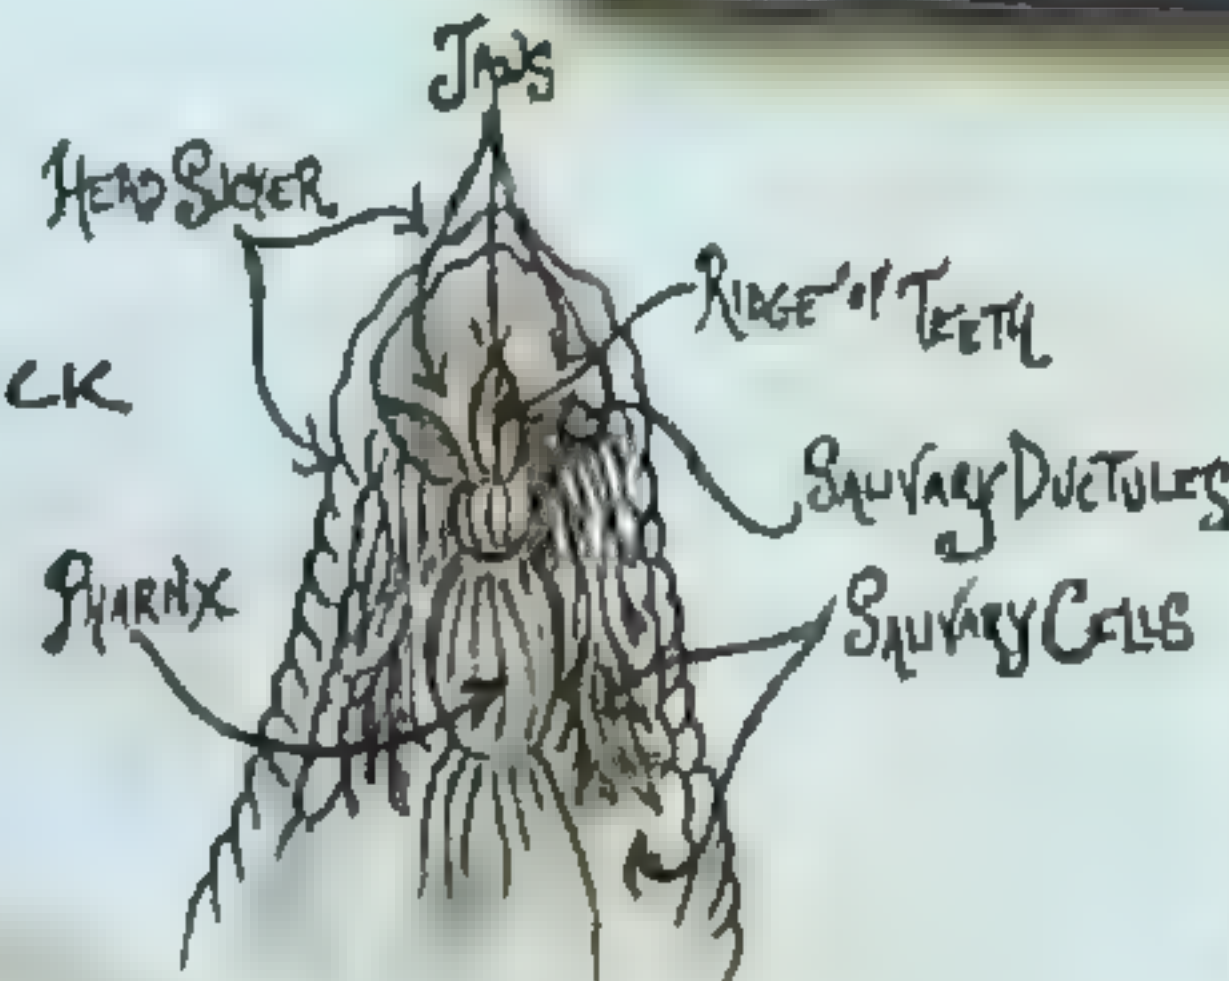 JAWS
HEAD SUCKER
RIDGE of TEETH
CK
SALIVARY DUCTULES
PHARNX
SALIVARY CELLS